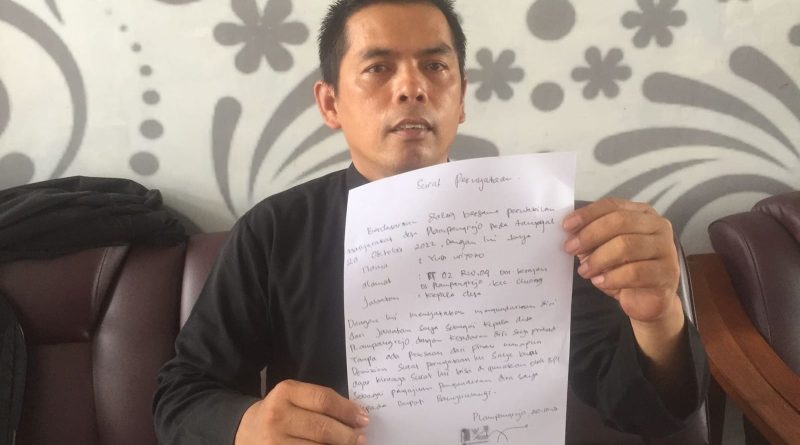 Surat Pernyataan.
Berdasarkan dialog bersama perwakilan
masyarakat desa Plampangrejo pada tanggal
20 Oktober 2022, dengan ini saya
Nama : Yusa wiyono
alamat : RT 02 RW.04
Ds Plampangrejo kec Cluring
Jabatan : kepala desa
Dengan Ini menyatakan mengundurkan diri
dari Jabatan saya sebagai kepala desa
Plampangrejo dengan kesadaran diri saya pribadi
Tanpa ada Paksaan dari pihak manapun
Demikian surat pernyataan ini saya buat
agar kiranya surat ini bisa di gunakan oleh BPD
Sebagai pengajuan pengunduran diri saya
kepada Bupati Banyuwangi.
Plampangrejo, 20-10-